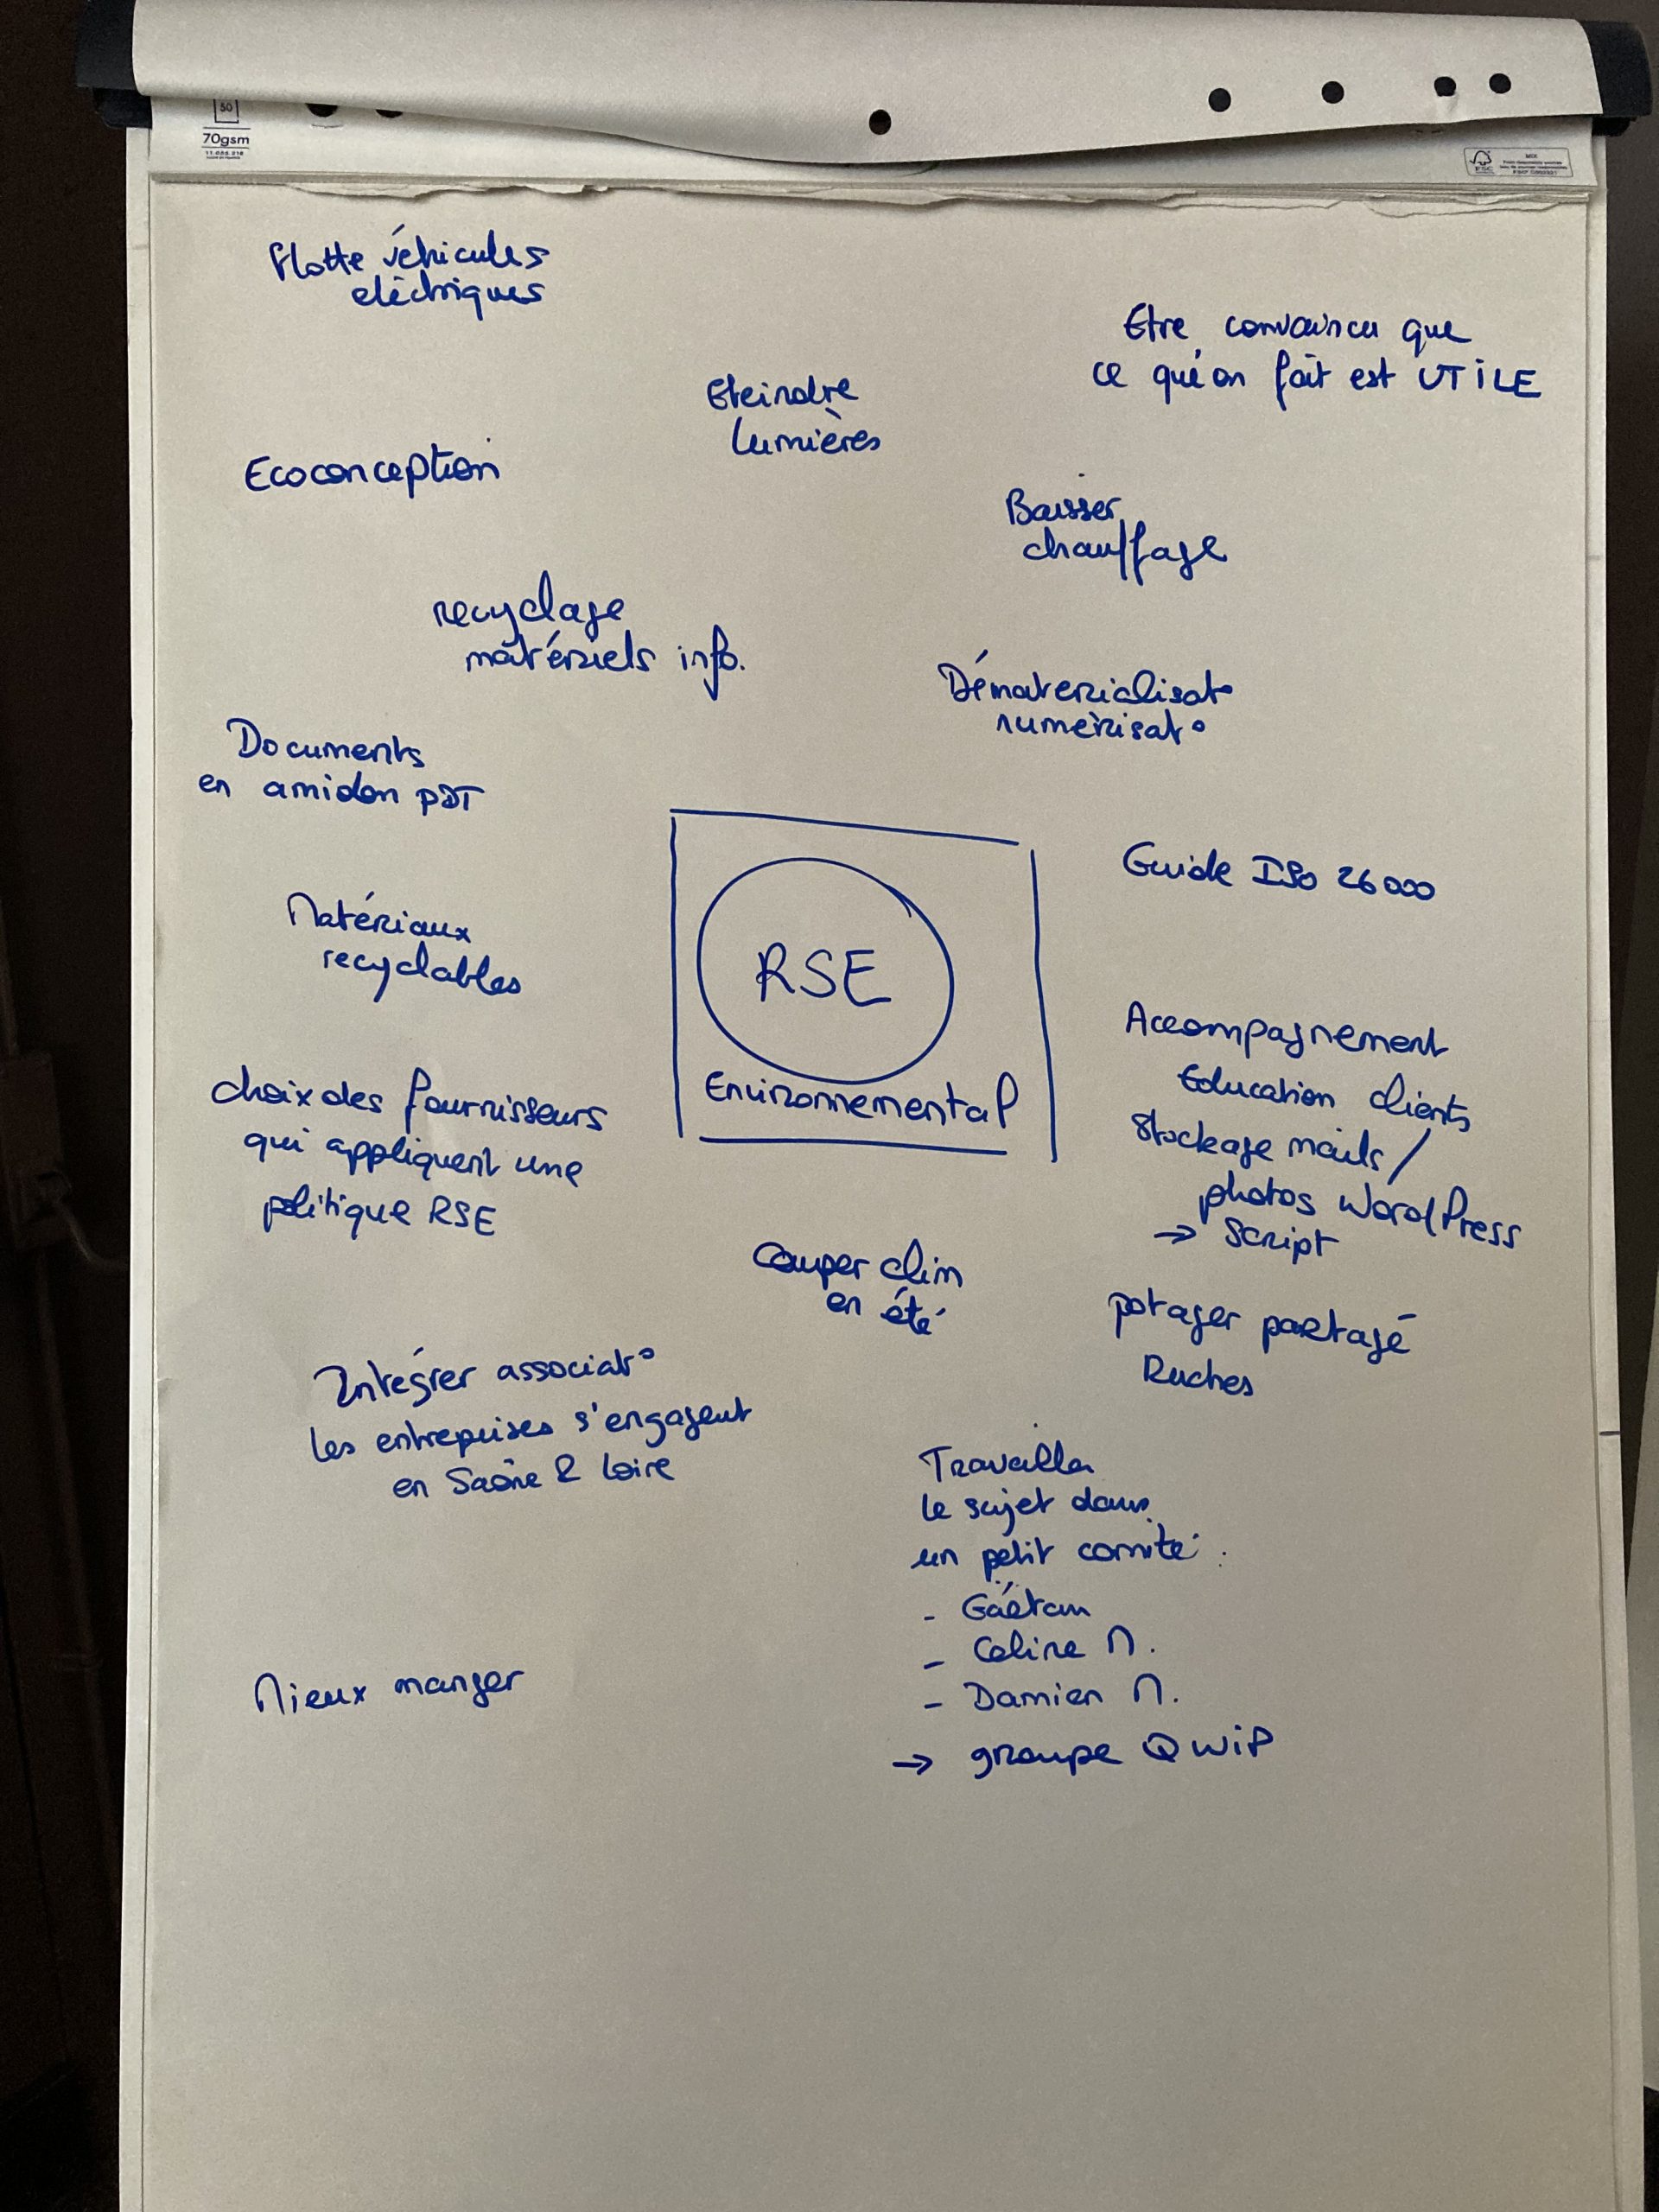 50
70gsm
FSC
MIX
Flotte véhicules
eléctriques
Etre convaincu que
ce qu'on fait est UTILE
Eteindre
lumières
Ecoconception
Baisser
chauffage
recyclage
matériels info.
Dématerialisat°
numérisat°
Documents
en amidon PDT
Guide ISO 26000
Matériaux
recyclables
RSE
Environnemental
Accompagnement
Education clients
Stockage mails/
photos WordPress
→ Script
choix des fournisseurs
qui appliquent une
politique RSE
Couper clim
en été
potager partagé
Ruches
Intégrer associat°
les entreprises s'engagent
en Saône & Loire
Travailler
le sujet dans
un petit comité :
- Gaétan
- Celine M.
- Damien M.
→ groupe QWiP
Mieux manger